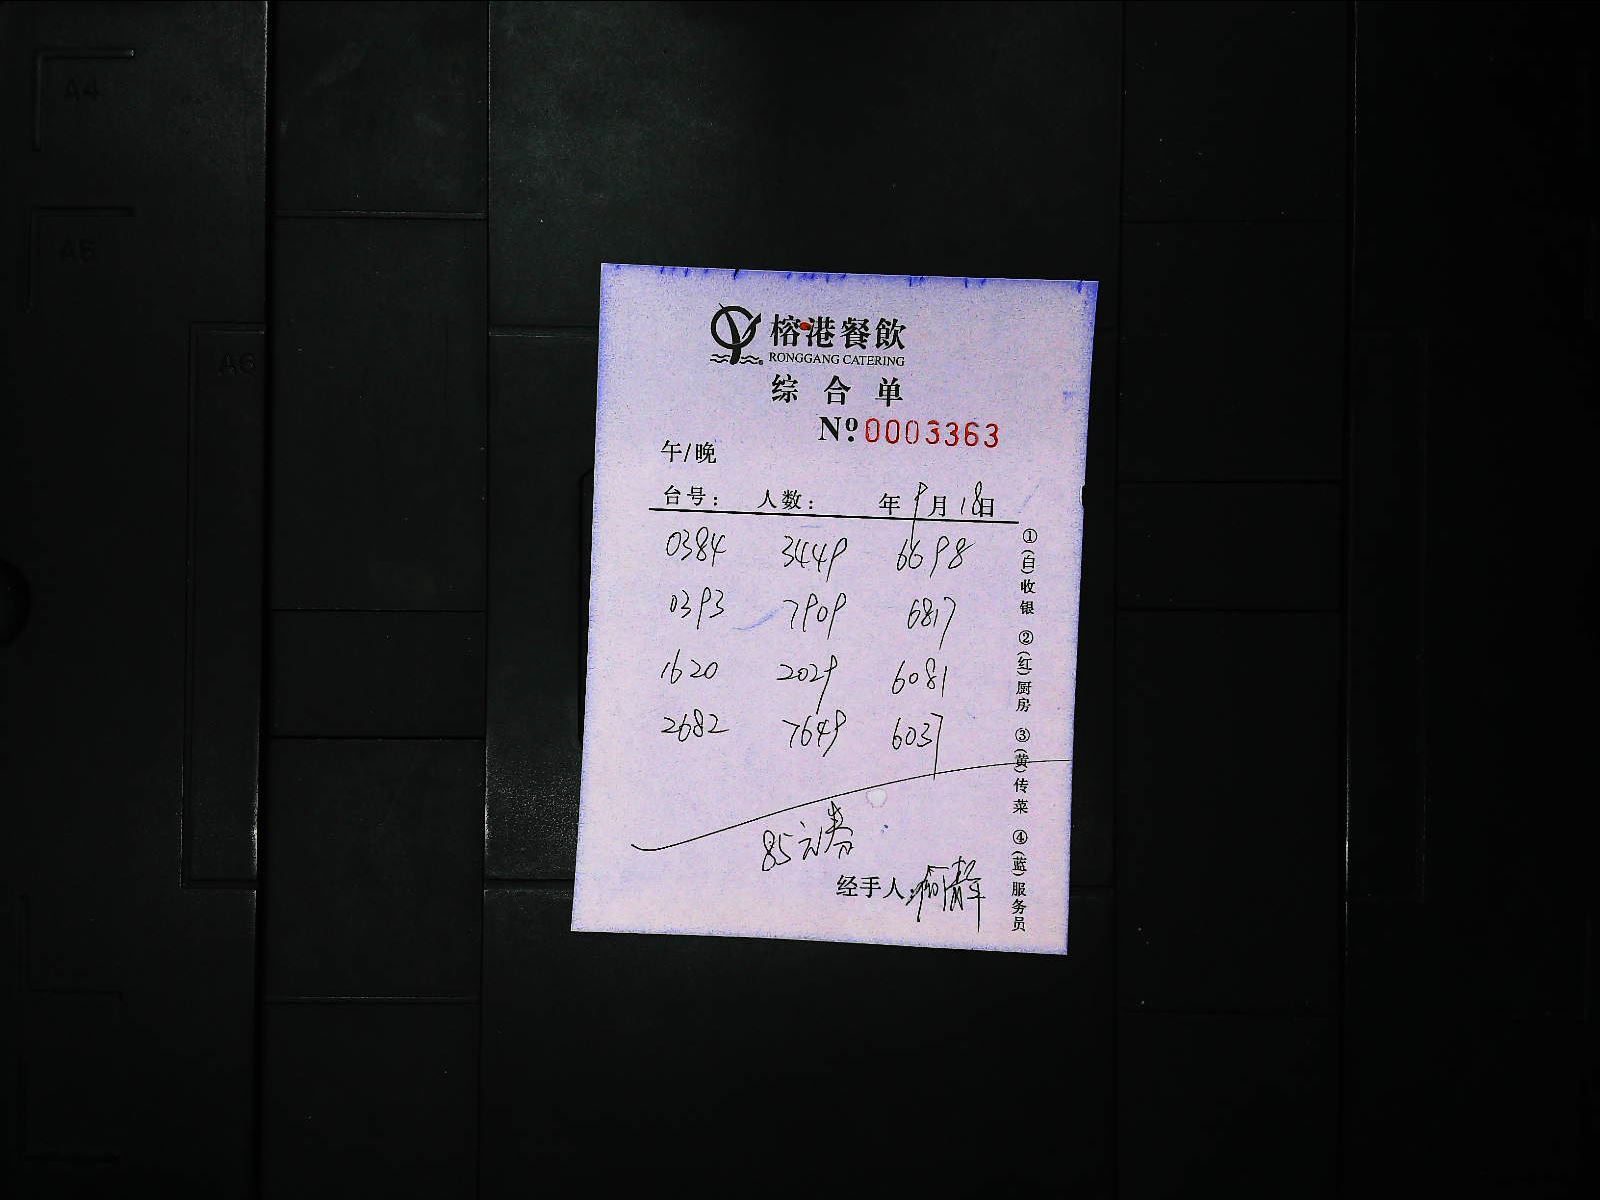 A4
A5
A6
榕港餐飲
RONGGANG CATERING
综合单
Nº 0003363
午/晚
台号: 人数: 年 9月18日
0384 3449 6698
0393 7909 6817
1620 2029 6081
2682 7649 6037
85元券
经手人:
①(白)收银 ②(红)厨房 ③(黄)传菜 ④(蓝)服务员